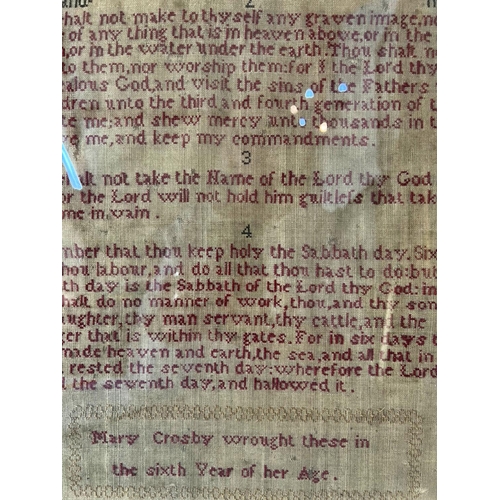 2
halt not make to thyself any graven image, no
of any thing that is in heaven above, or in the
, or in the water under the earth. Thou shalt n
to them, nor worship them: for I the Lord thy
alous God, and visit the sins of the Fathers
dren unto the third and fourth generation of t
te me; and shew mercy unto thousands in t
ve me, and keep my commandments.
3
halt not take the Name of the Lord thy God
or the Lord will not hold him guiltleſs that tak
me in vain.
4
mber that thou keep holy the Sabbath day. Six
hou labour, and do all that thou hast to do: but
th day is the Sabbath of the Lord thy God: in
halt do no manner of work, thou, and thy son
aughter, thy man servant, thy cattle, and the
ger that is within thy gates. For in six days t
made heaven and earth, the sea, and all that in
rested the seventh day: wherefore the Lord
the seventh day, and hallowed it.
Mary Crosby wrought these in
the sixth Year of her Age.